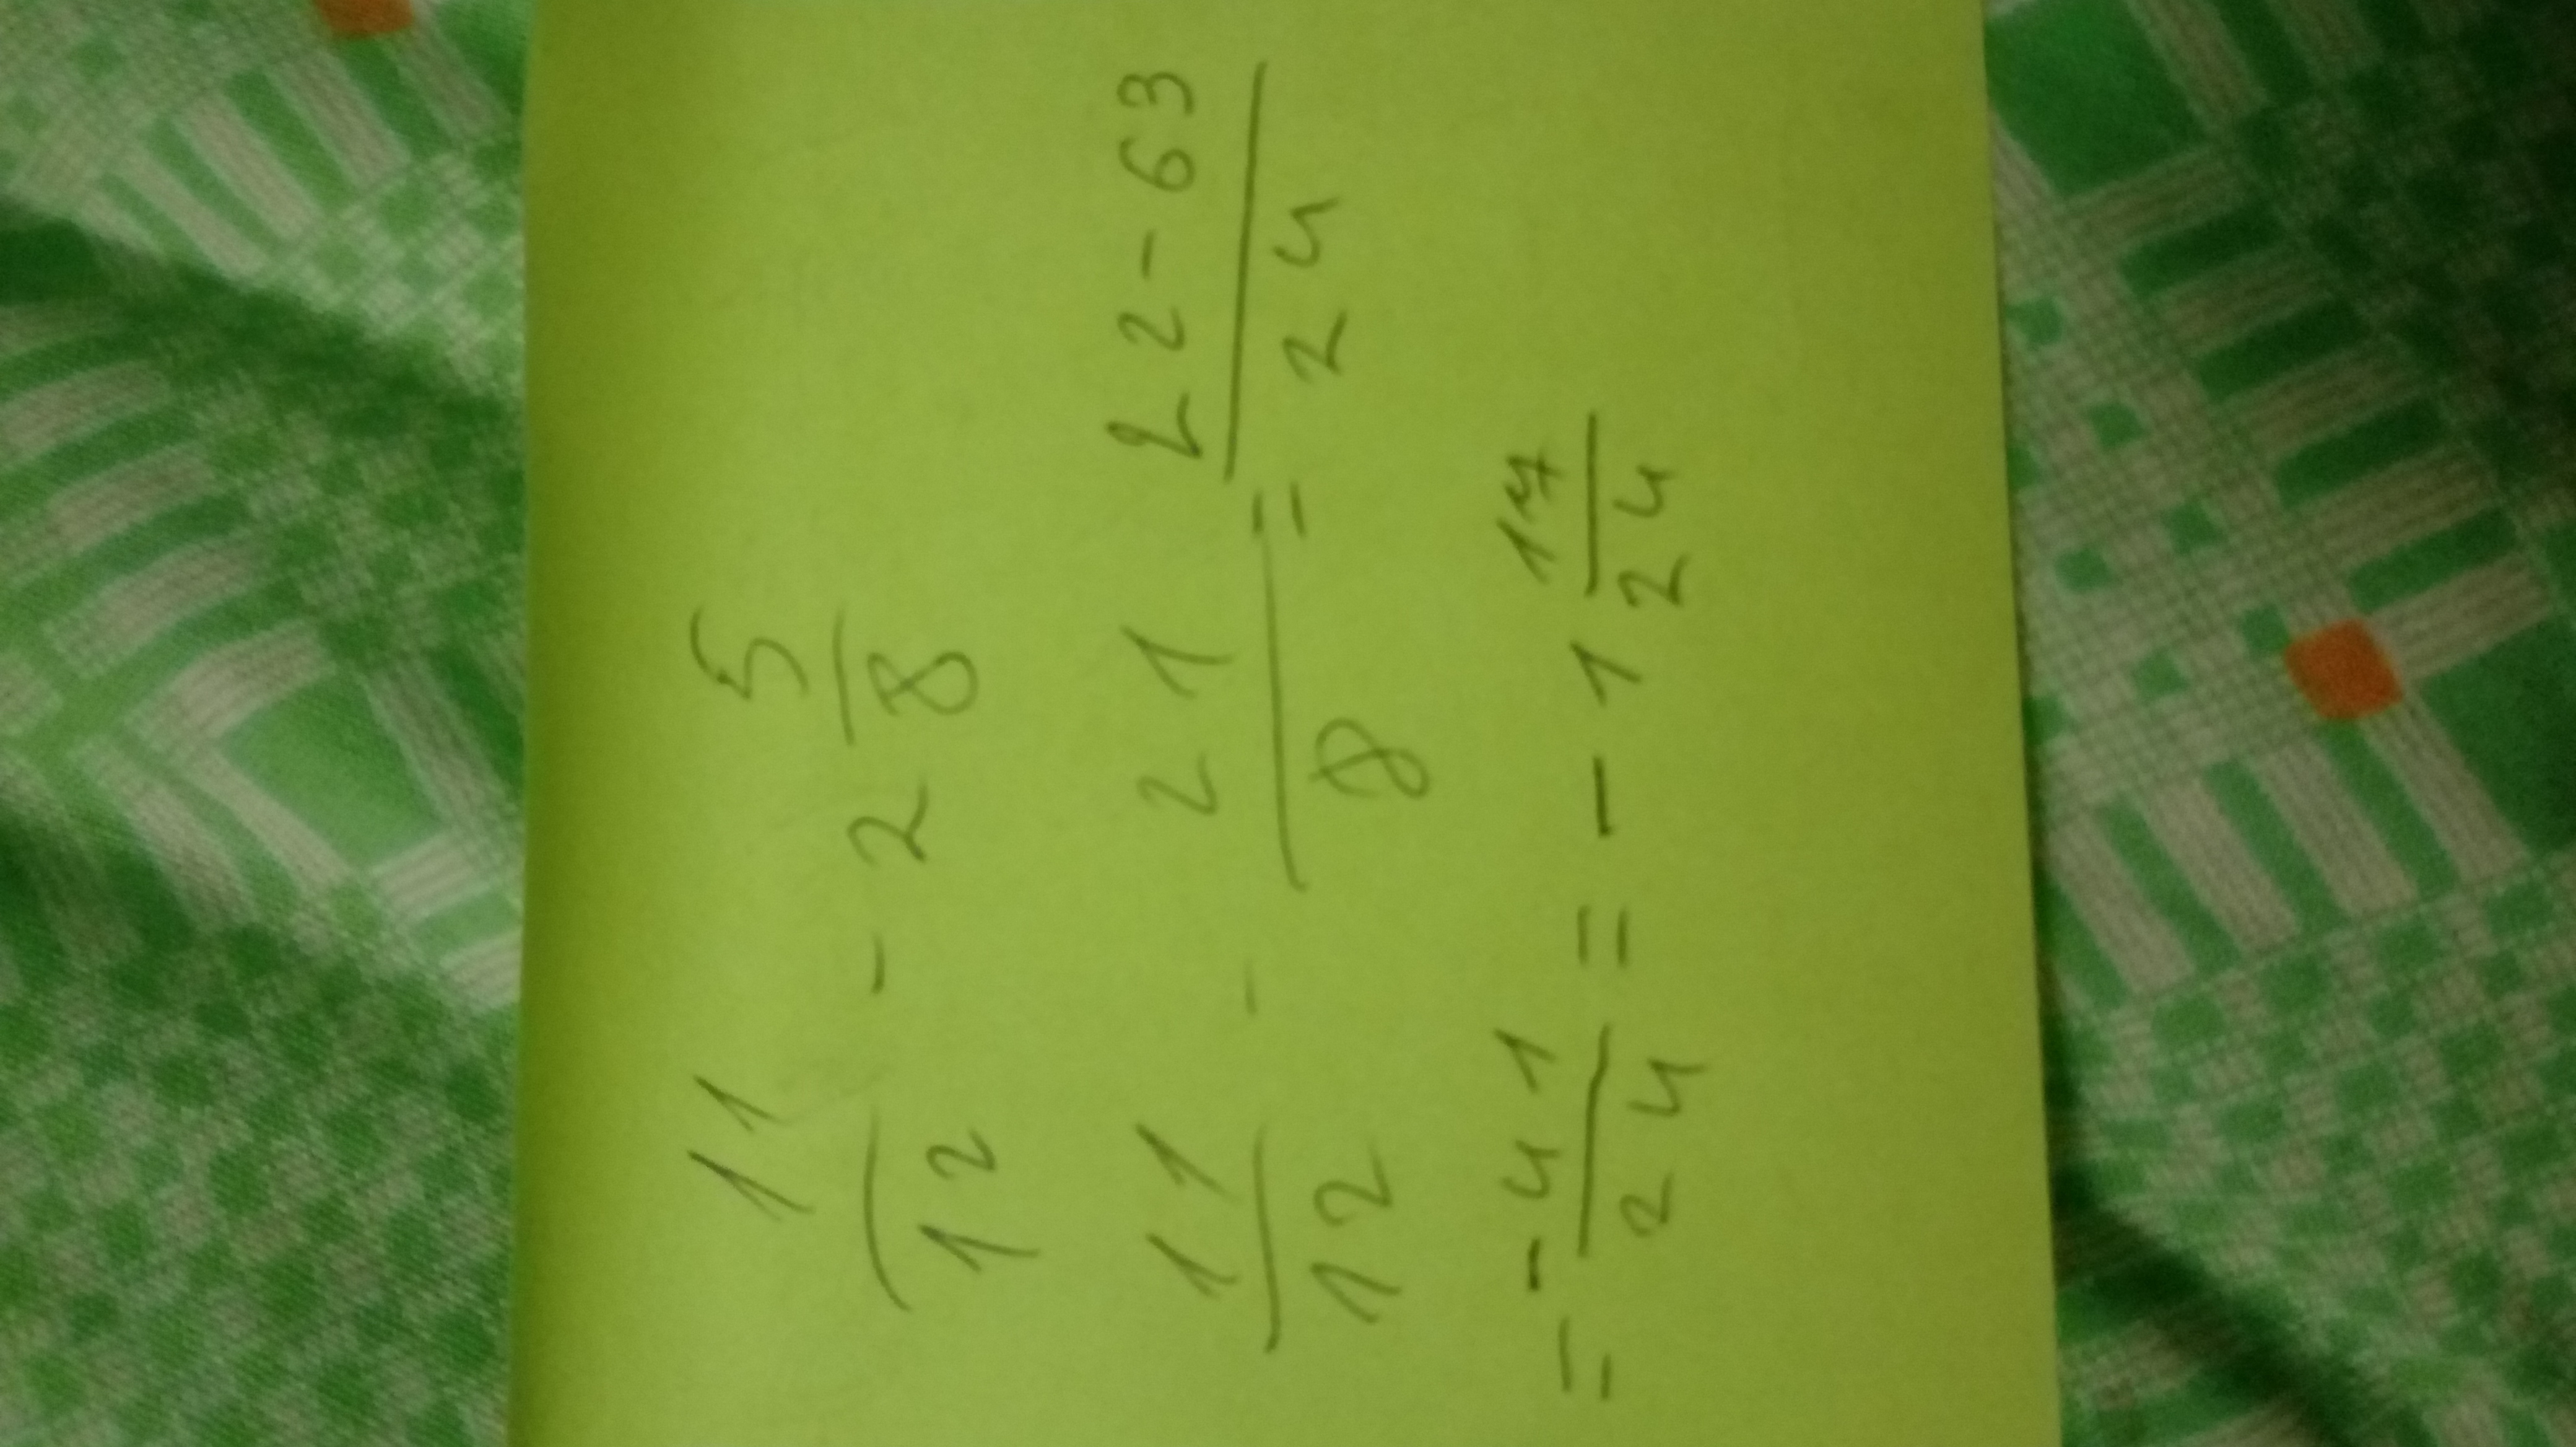 11/12 - 2 5/8
11/12 - 21/8 = 22-63/24
= -41/24 = -1 17/24